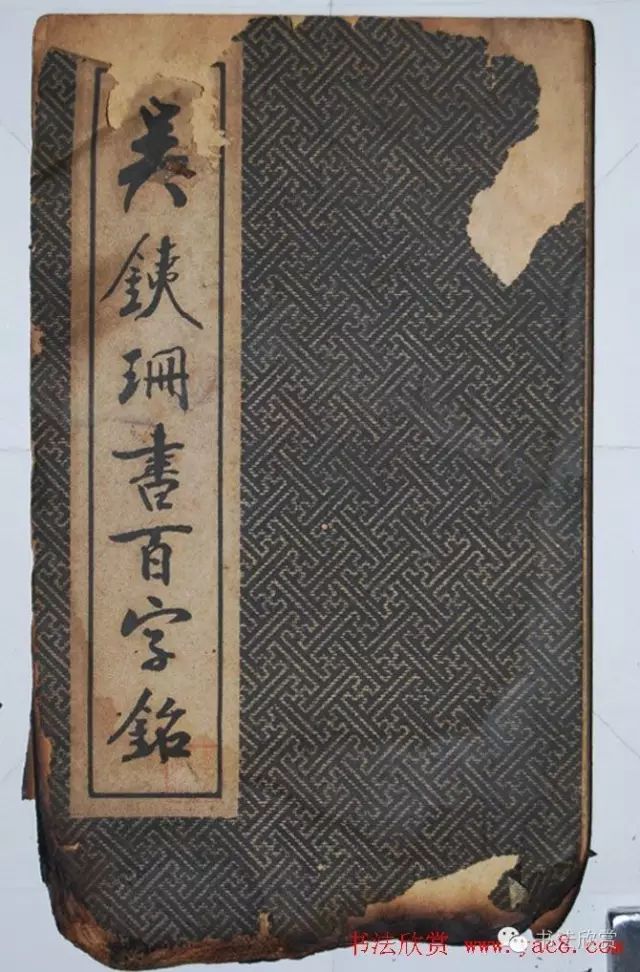 吴銕珊書百字銘
书法欣赏 www.yac8.com
书法欣赏